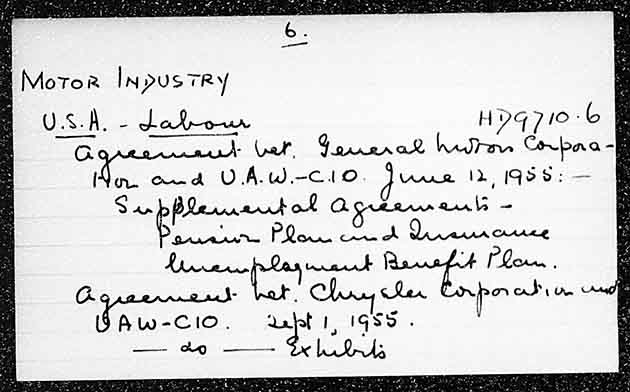 6.
MOTOR INDUSTRY
U.S.A. - Labour HD9710.6
Agreement bet. General Motors Corpora-
tion and U.A.W.-C.I.O. June 12, 1955: -
Supplemental Agreements -
Pension Plan and Insurance
Unemployment Benefit Plan.
Agreement bet. Chrysler Corporation and
UAW-CIO. Sept 1, 1955.
— do — Exhibits